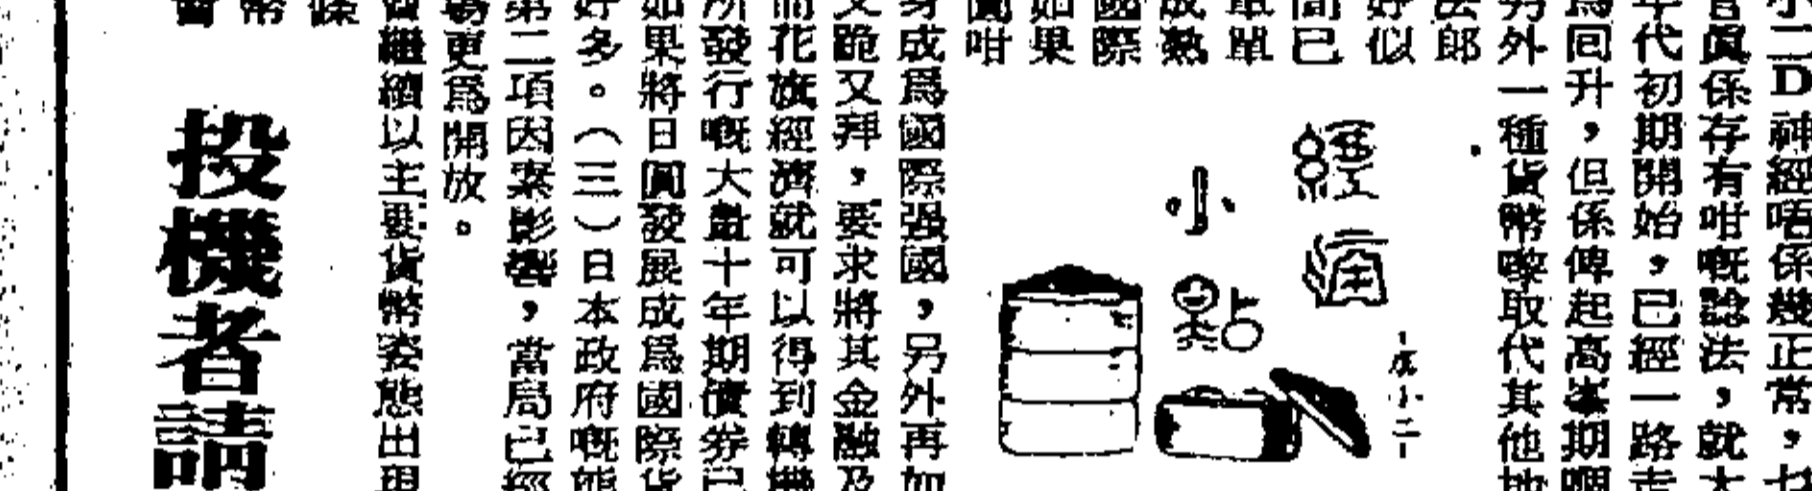 小二D神經唔係幾正常，
官眞係存有咁嘅諗法，就
年代初期開始，已經一路走
爲同升，但係俾起高峯期嗰
另外一種貨幣嚟取代其他地
法郎
好似
間已
單單
成熟
國際
如果
圓咁
經濟
小點
小二
身成爲國際强國，另外再如
又跪又拜，要求將其金融及
而花旗經濟就可以得到轉機
所發行嘅大量十年期債券已
如果將日圓發展成爲國際貨
好多。（三）日本政府嘅態
第二項因案影響，當局已經
易更爲開放。
會繼續以主要貨幣姿態出現
條
幣
會
投機者請